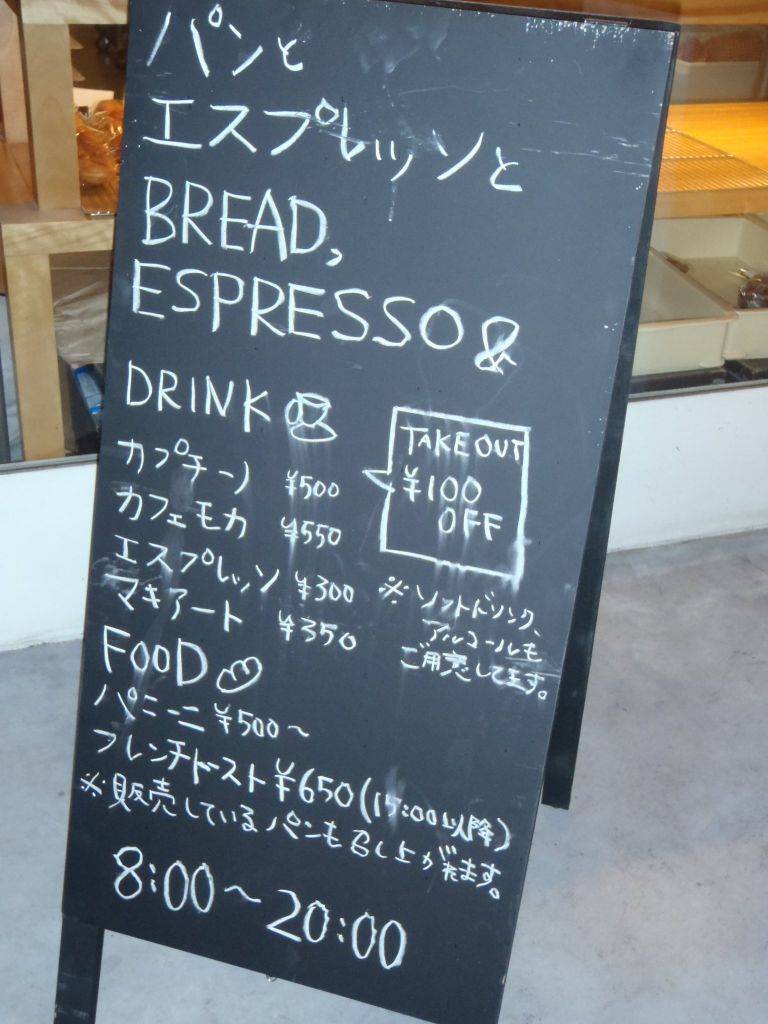 パンと
エスプレッソと
BREAD,
ESPRESSO &
DRINK
カプチーノ ¥500
カフェモカ ¥550
エスプレッソ ¥300
マキアート ¥350
TAKE OUT
¥100
OFF
※ソフトドリンク、
アルコールも
ご用意してます。
FOOD
パニーニ ¥500〜
フレンチトースト ¥650(15:00以降)
※販売しているパンも召し上がれます。
8:00〜20:00